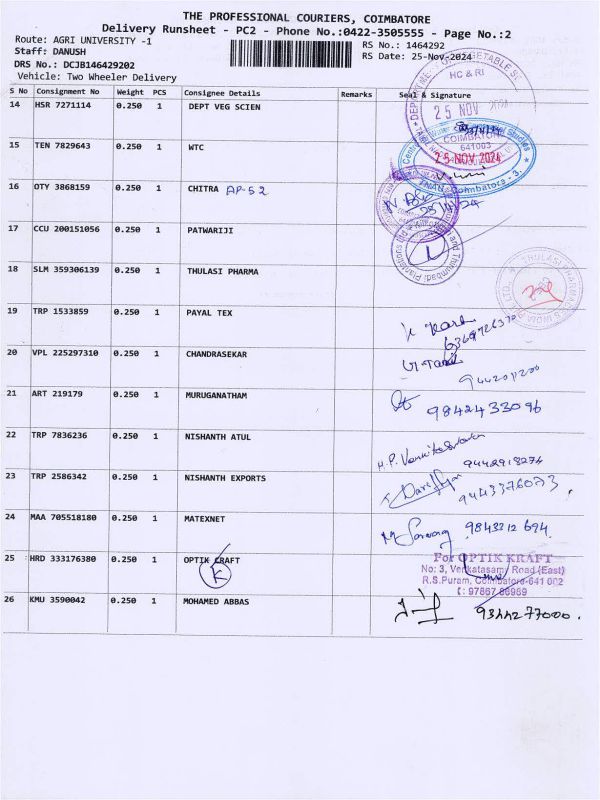 THE PROFESSIONAL COURIERS, COIMBATORE
Delivery Runsheet - PC2 - Phone No.:0422-3505555 - Page No.:2
Route: AGRI UNIVERSITY -1
RS No.: 1464292
Staff: DANUSH
RS Date: 25-Nov-2024
DRS No.: DCJB146429202
Vehicle: Two Wheeler Delivery
S No Consignment No Weight PCS Consignee Details Remarks Seal & Signature
14 HSR 7271114 0.250 1 DEPT VEG SCIEN
HC & RI
25 NOV
COIMBATORE
641003
15 TEN 7829643 0.250 1 WTC
25 NOV 2024
TNAU, Coimbatore - 3.
16 OTY 3868159 0.250 1 CHITRA AP-52
25/11/24
17 CCU 200151056 0.250 1 PATWARIJI
18 SLM 359306139 0.250 1 THULASI PHARMA
19 TRP 1533859 0.250 1 PAYAL TEX
20 VPL 225297310 0.250 1 CHANDRASEKAR
21 ART 219179 0.250 1 MURUGANATHAM
9842433096
22 TRP 7836236 0.250 1 NISHANTH ATUL
9442918274
23 TRP 2586342 0.250 1 NISHANTH EXPORTS
9443376073
24 MAA 705518180 0.250 1 MATEXNET
9843312 694
25 HRD 333176380 0.250 1 OPTIK CRAFT
K
For OPTIK KRAFT
No: 3, Venkatasami Road (East)
R.S.Puram, Coimbatore-641 002
: 97867 86969
26 KMU 3590042 0.250 1 MOHAMED ABBAS
9344277000.